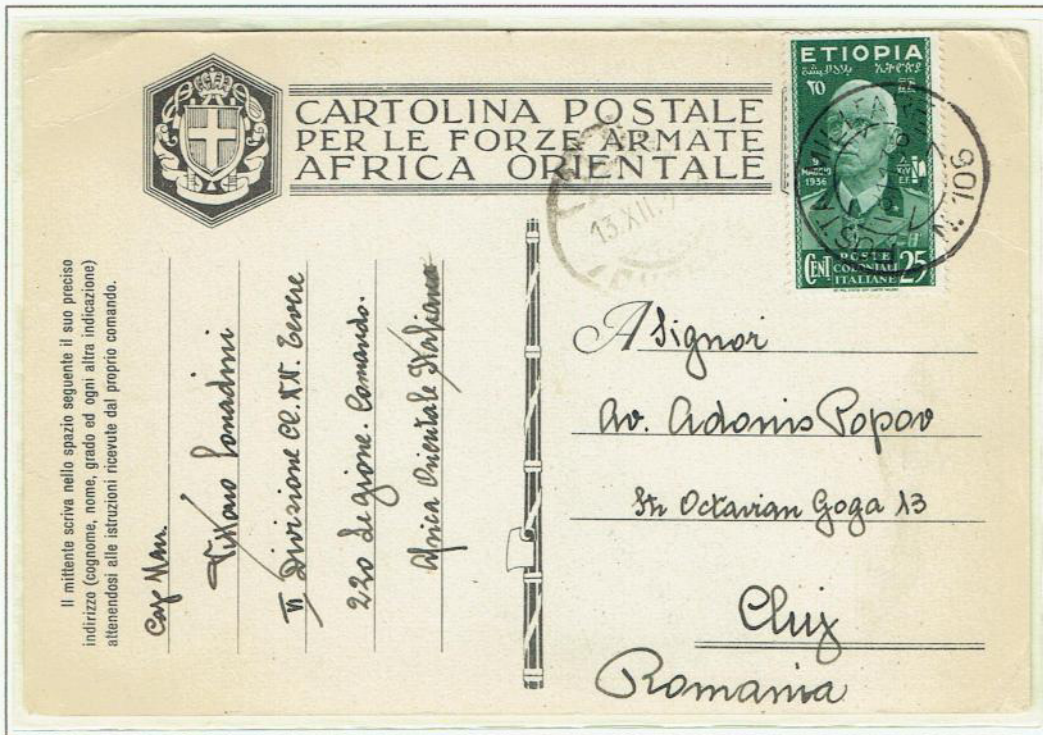 CARTOLINA POSTALE
PER LE FORZE ARMATE
AFRICA ORIENTALE
ETIOPIA
٢٥
9
MAGGIO
1936
A
XIV
E.F.
CENT
POSTE
COLONIALI
ITALIANE
25
N. 106
13.XII.
Il mittente scriva nello spazio seguente il suo preciso
indirizzo (cognome, nome, grado ed ogni altra indicazione)
attenendosi alle istruzioni ricevute dal proprio comando.
VI Divisione CC.NN. Tevere
220 Legione. Comando.
Africa Orientale Italiana
A Signor
Av. Adonis Popov
Str Octavian Goga 13
Cluj
Romania